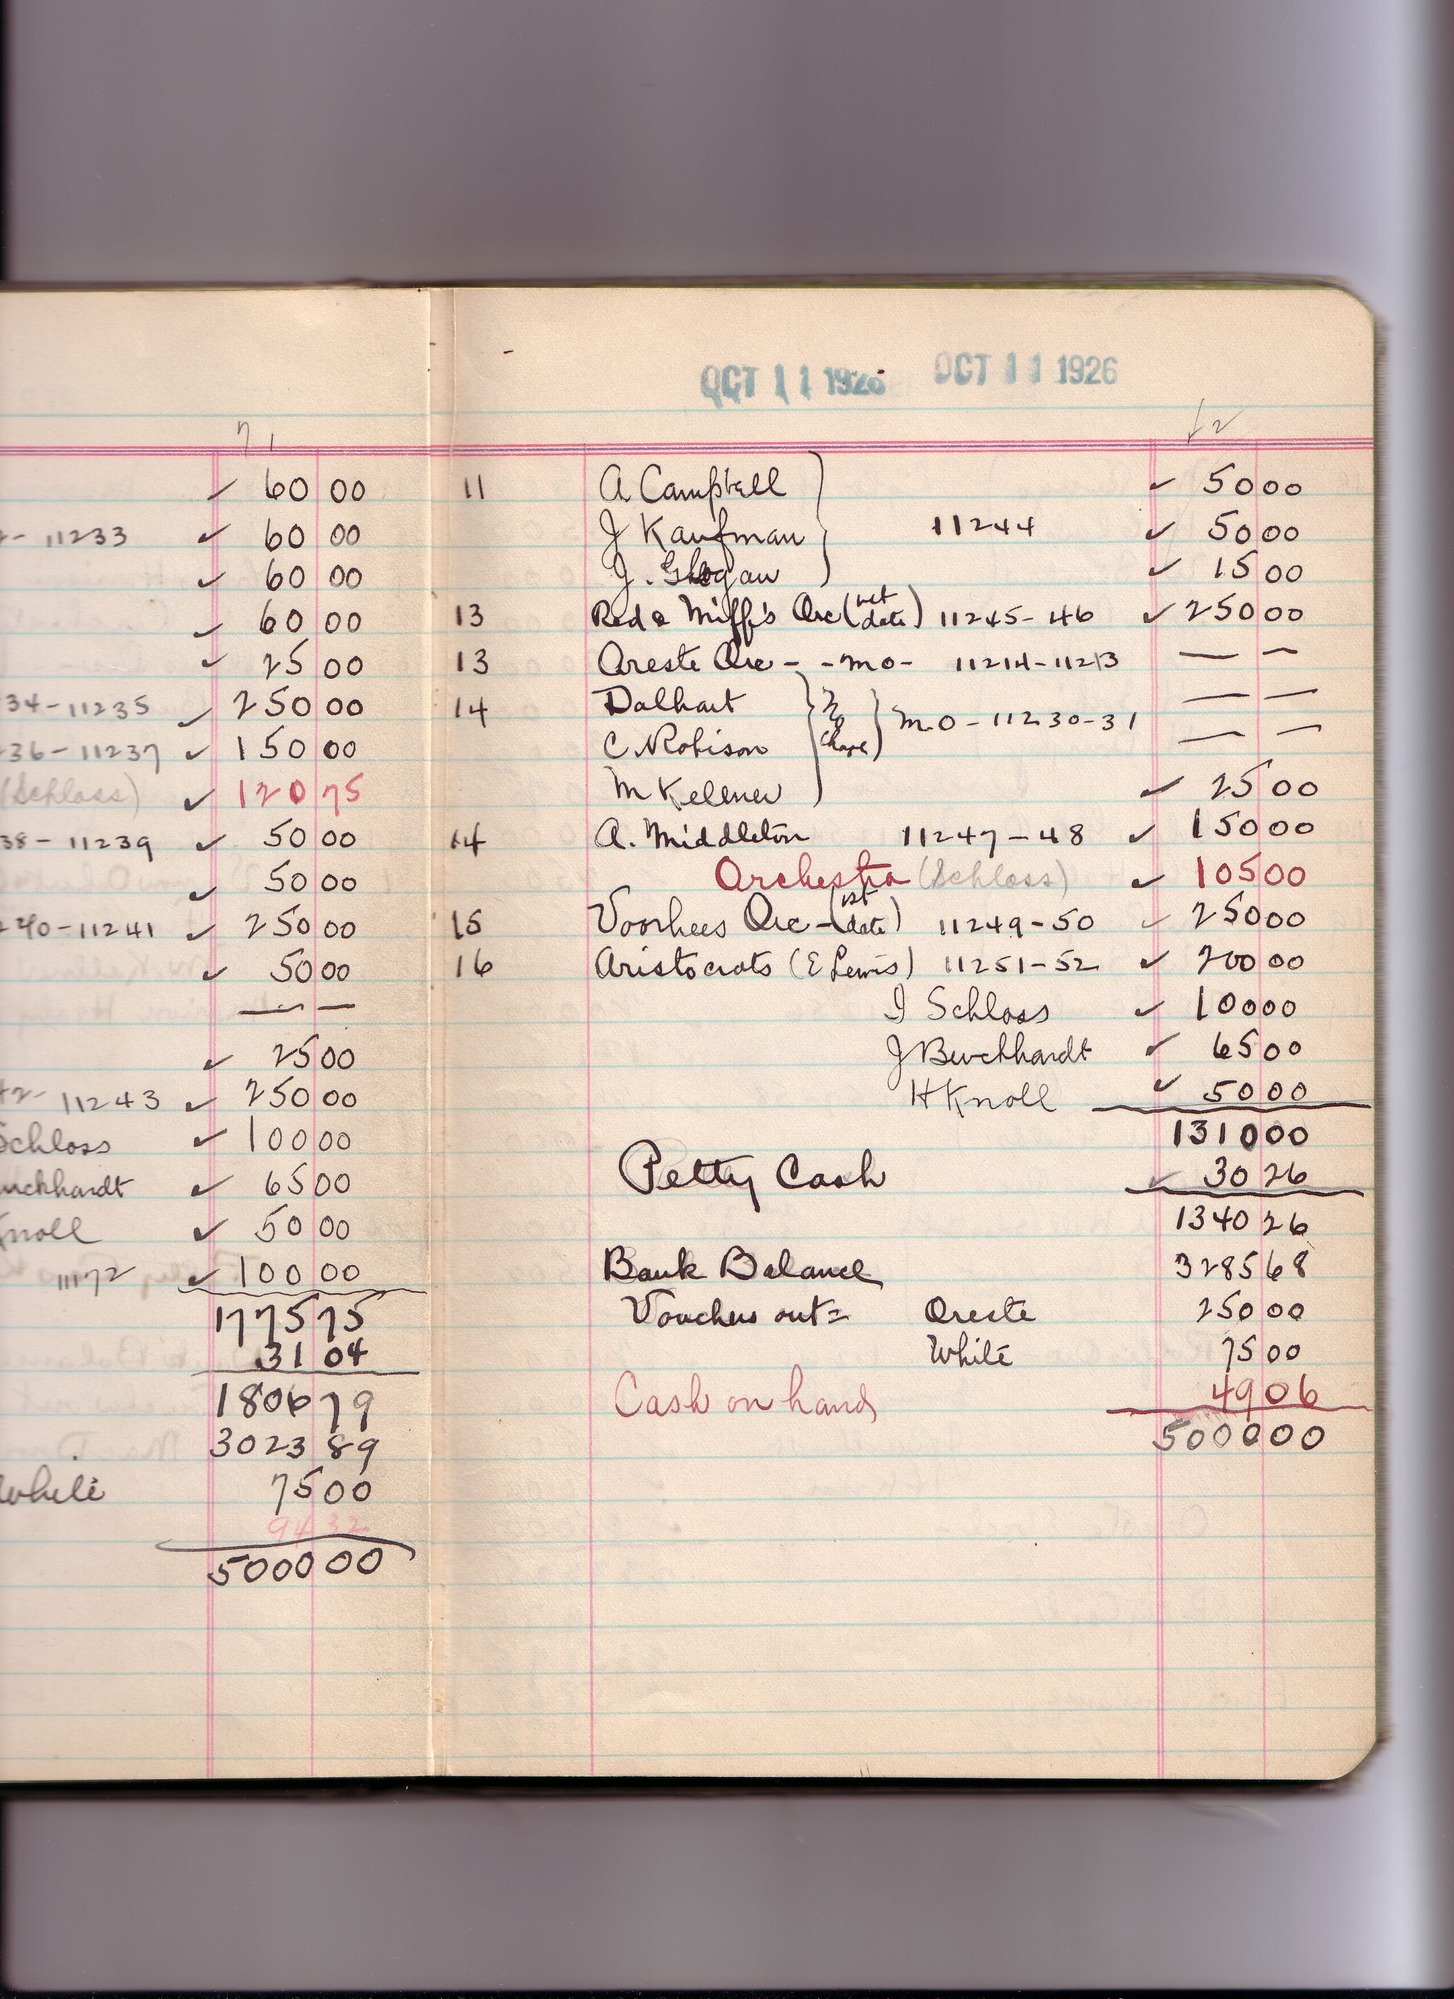 71
✓ 60 00
2- 11233 ✓ 60 00
✓ 60 00
✓ 60 00
✓ 25 00
34-11235 ✓ 250 00
236-11237 ✓ 150 00
(Schloss) ✓ 120 75
38-11239 ✓ 50 00
✓ 50 00
240-11241 ✓ 250 00
✓ 50 00
— —
✓ 25 00
42- 11243 ✓ 250 00
Schloss ✓ 100 00
urckhardt ✓ 65 00
Knoll ✓ 50 00
11172 ✓ 100 00
1775 75
31 04
1806 79
3023 89
White 75 00
94 32
5000 00
OCT 11 1926 OCT 11 1926
72
11 A Campbell ✓ 50 00
J Kaufman 11244 ✓ 50 00
J. ✓ 15 00
13 Red & Miff's Orc (1st date) 11245-46 ✓ 250 00
13 Oreste Orc - - mo - 11214-11213 — —
14 Dalhart No — —
C Robison Charge m.o - 11230-31 — —
M Kellner ✓ 25 00
14 A. Middleton 11247-48 ✓ 150 00
Orchestra (Schloss) ✓ 105 00
15 Voorhees Orc - (1st date) 11249-50 ✓ 250 00
16 Aristocrats (E Lewis) 11251-52 ✓ 200 00
I Schloss ✓ 100 00
J Burckhardt ✓ 65 00
H Knoll ✓ 50 00
1310 00
Petty Cash ✓ 30 26
1340 26
Bank Balance 3285 68
Vouchers out = Oreste 250 00
White 75 00
Cash on hand 49 06
5000 00